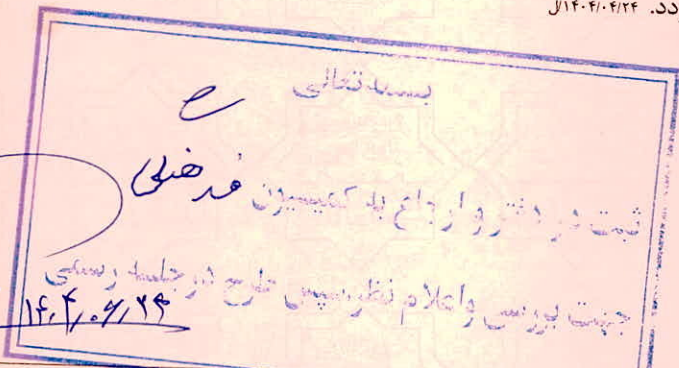 ۱۴۰۴/۰۴/۲۴
بسمه تعالی
ثبت در دفتر و ارجاع به کمیسیون فرهنگی
جهت بررسی و اعلام نظر سپس طرح در جلسه رسمی